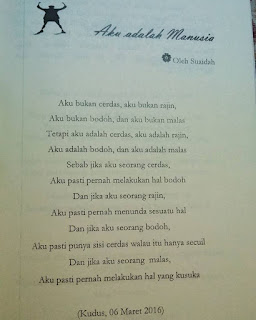 Aku adalah Manusia
Oleh Suaidah
Aku bukan cerdas, aku bukan rajin,
Aku bukan bodoh, dan aku bukan malas
Tetapi aku adalah cerdas, aku adalah rajin,
Aku adalah bodoh, dan aku adalah malas
Sebab jika aku seorang cerdas,
Aku pasti pernah melakukan hal bodoh
Dan jika aku seorang rajin,
Aku pasti pernah menunda sesuatu hal
Dan jika aku seorang bodoh,
Aku pasti punya sisi cerdas walau itu hanya secuil
Dan jika aku seorang malas,
Aku pasti pernah melakukan hal yang kusuka
(Kudus, 06 Maret 2016)